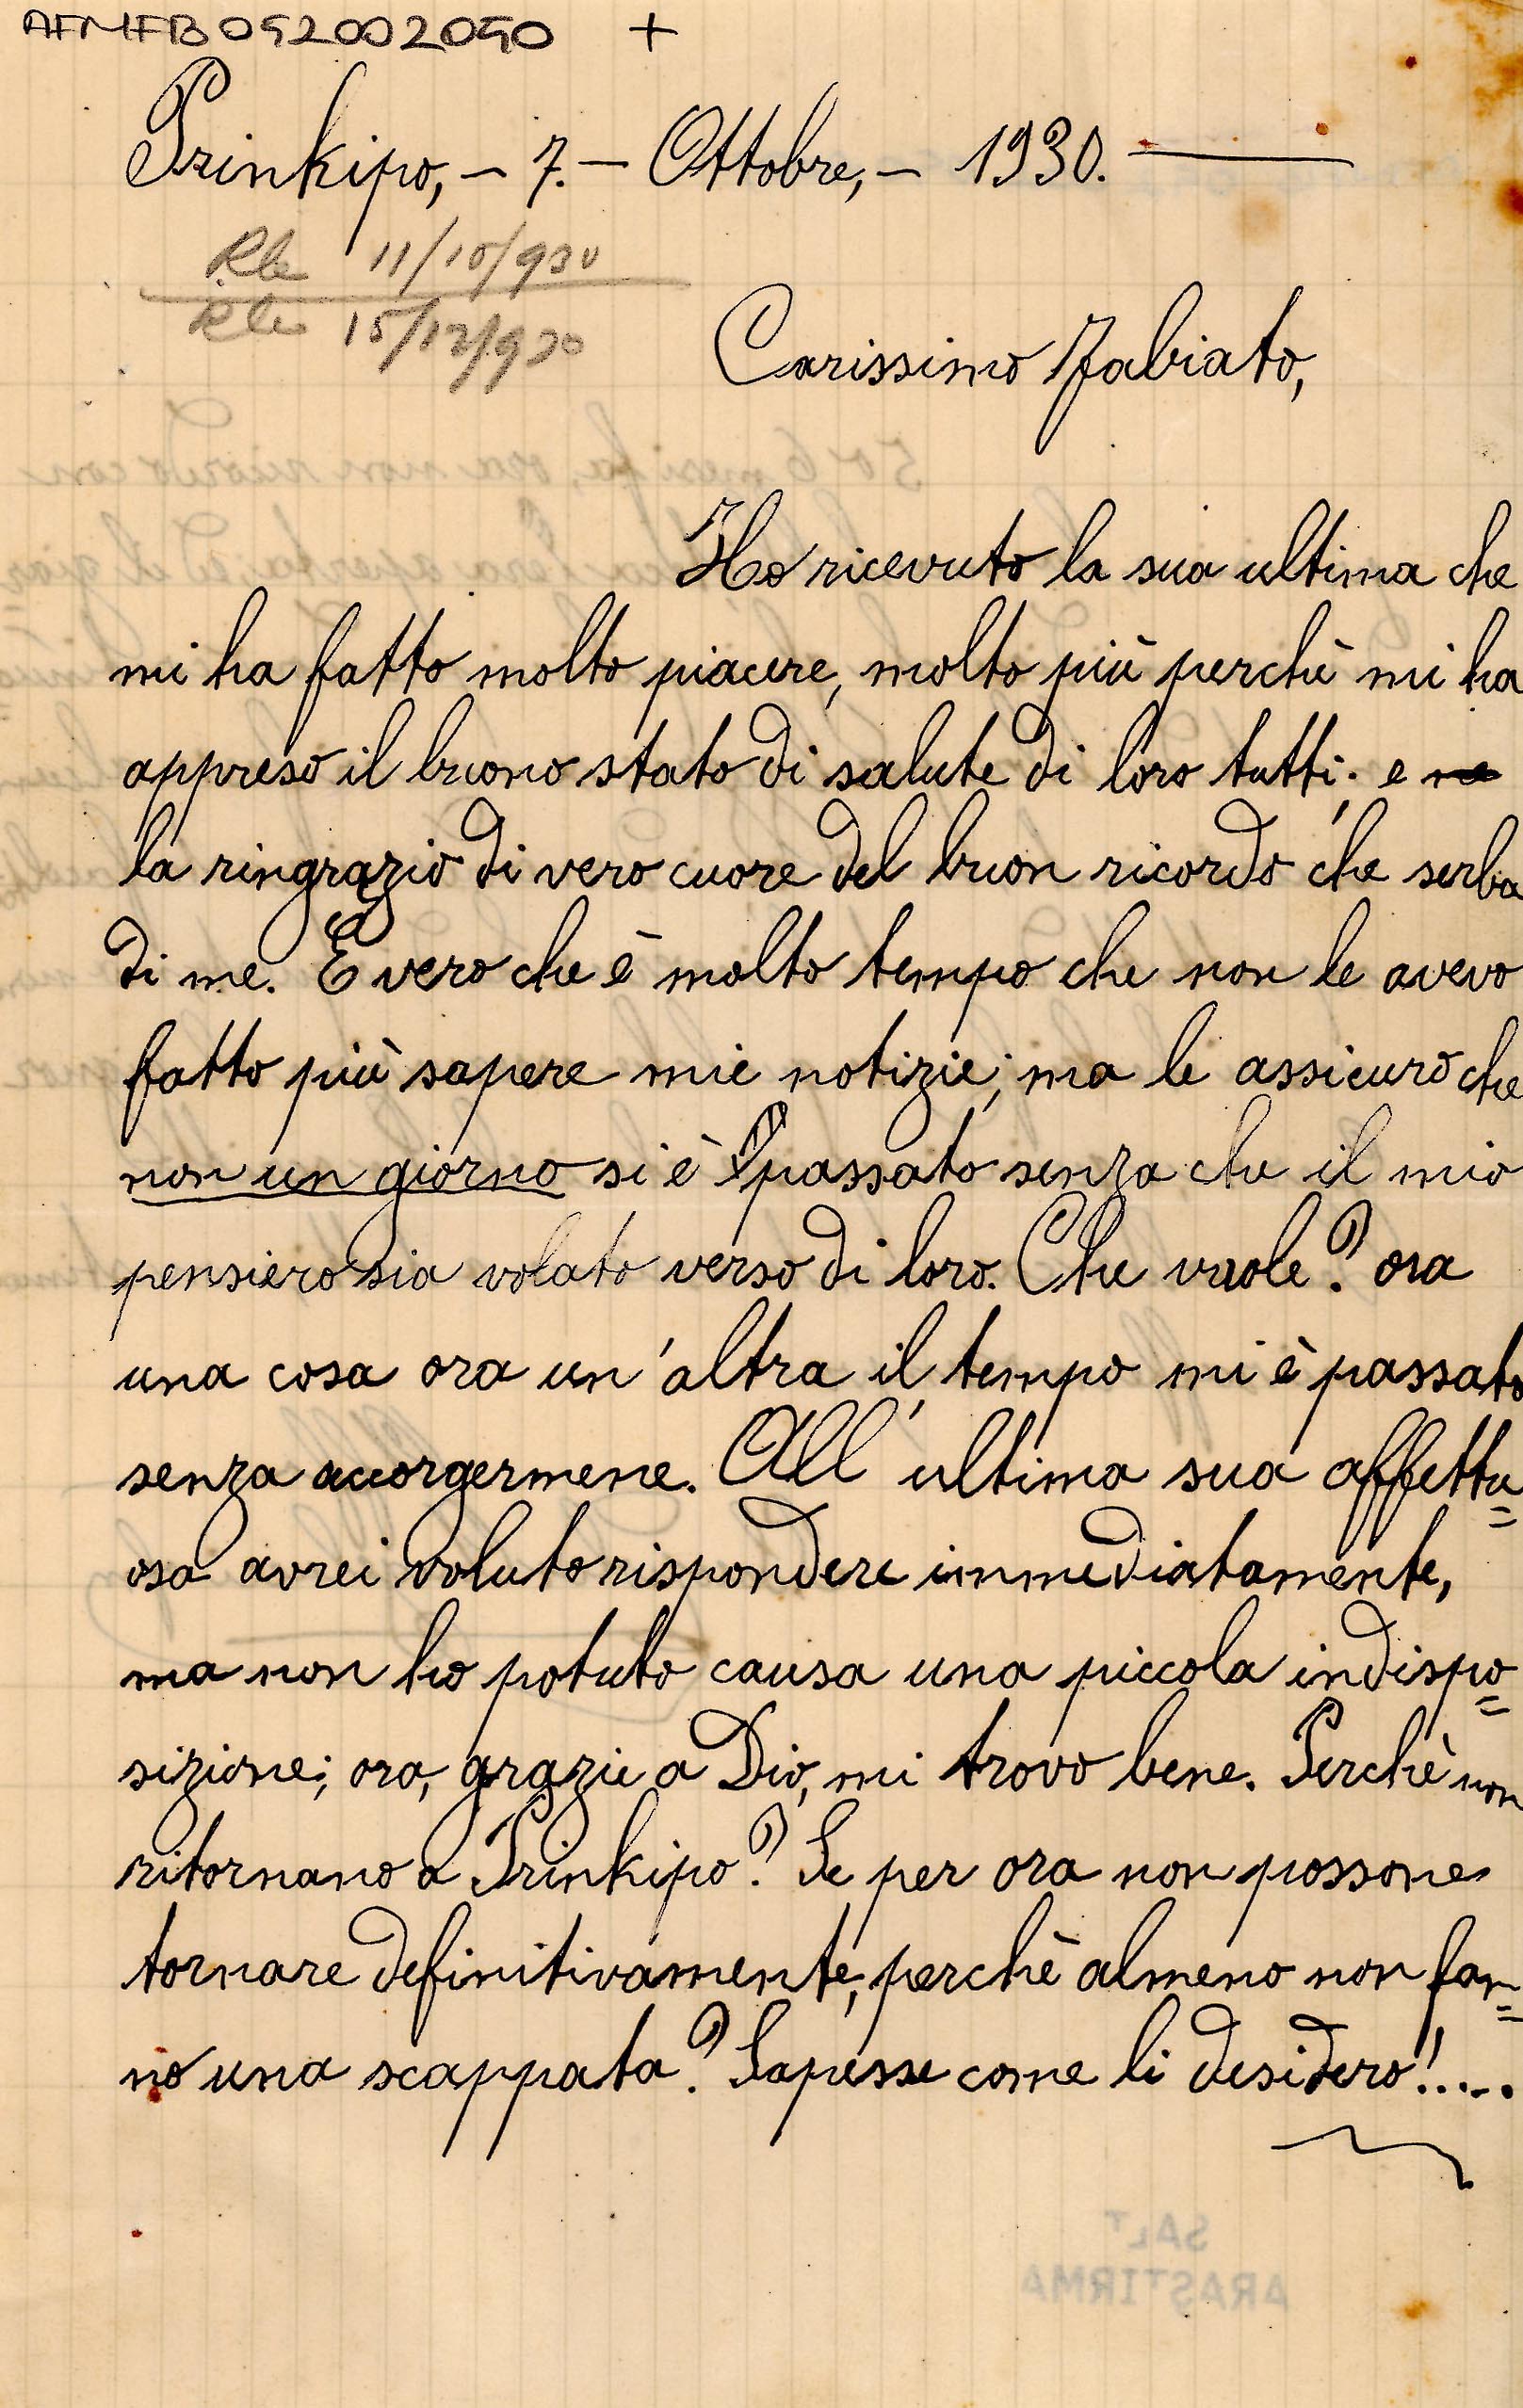 AFMFB052002050 +
Prinkipo, – 7. – Ottobre, – 1930.
Rle 11/10/930
Rle 15/12/930
Carissimo Fabiato,
Ho ricevuto la sua ultima che
mi ha fatto molto piacere, molto più perchè mi ha
appreso il buono stato di salute di loro tutti; e
la ringrazio di vero cuore del buon ricordo che serba
di me. È vero che è molto tempo che non le avevo
fatto più sapere mie notizie; ma le assicuro che
non un giorno si è passato senza che il mio
pensiero sia volato verso di loro. Che vuole? ora
una cosa ora un'altra il tempo mi è passato
senza accorgermene. All'ultima sua affettu=
osa avrei voluto rispondere immediatamente,
ma non ho potuto causa una piccola indispo=
sizione; ora, grazie a Dio, mi trovo bene. Perchè non
ritornano a Prinkipo? Se per ora non possono
tornare definitivamente, perchè almeno non fan=
no una scappata? Sapesse come li desidero!....
SALT
ARAŞTIRMA